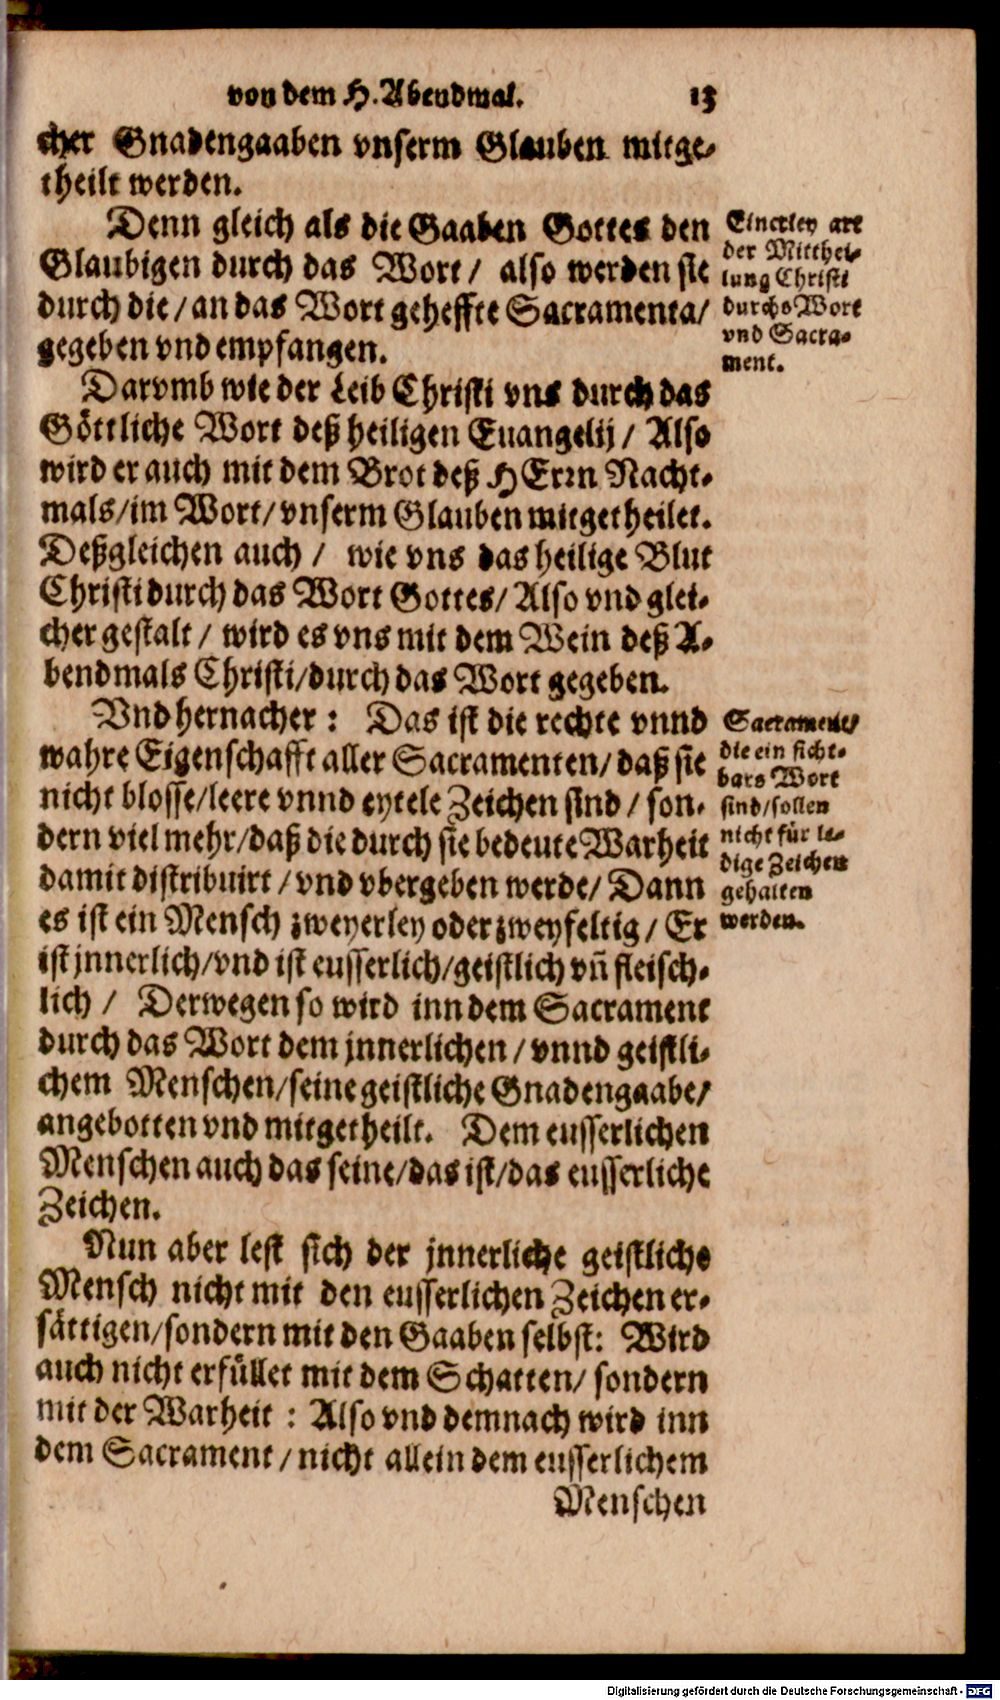 von dem H. Abendmal. 13
cher Gnadengaaben vnserm Glauben mitge-
theilt werden.
Denn gleich als die Gaaben Gottes den
Glaubigen durch das Wort/ also werden sie
durch die/ an das Wort geheffte Sacramenta/
gegeben vnd empfangen.
Einerley art
der Mitthei-
lung Christi
durchs Wort
vnd Sacra-
ment.
Darvmb wie der Leib Christi vns durch das
Göttliche Wort deß heiligen Euangelij/ Also
wird er auch mit dem Brot deß HErrn Nacht-
mals/ im Wort/ vnserm Glauben mitgetheilet.
Deßgleichen auch/ wie vns das heilige Blut
Christi durch das Wort Gottes/ Also vnd glei-
cher gestalt/ wird es vns mit dem Wein deß A-
bendmals Christi/ durch das Wort gegeben.
Vnd hernacher: Das ist die rechte vnnd
wahre Eigenschafft aller Sacramenten/ daß sie
nicht blosse/ leere vnnd eytele Zeichen sind/ son-
dern viel mehr/ daß die durch sie bedeute Warheit
damit distribuirt/ vnd vbergeben werde/ Dann
es ist ein Mensch zweyerley oder zweyfeltig/ Er
ist jnnerlich/ vnd ist eusserlich/ geistlich vñ fleisch-
lich/ Derwegen so wird inn dem Sacrament
durch das Wort dem jnnerlichen/ vnnd geistli-
chem Menschen/ seine geistliche Gnadengaabe/
angebotten vnd mitgetheilt. Dem eusserlichen
Menschen auch das seine/ das ist/ das eusserliche
Zeichen.
Sacrament/
die ein sicht-
bars Wort
sind/ sollen
nicht für le-
dige Zeichen
gehalten
werden.
Nun aber lest sich der jnnerliche geistliche
Mensch nicht mit den eusserlichen Zeichen er-
sättigen/ sondern mit den Gaaben selbst: Wird
auch nicht erfüllet mit dem Schatten/ sondern
mit der Warheit: Also vnd demnach wird inn
dem Sacrament/ nicht allein dem eusserlichem
Menschen
Digitalisierung gefördert durch die Deutsche Forschungsgemeinschaft - DFG